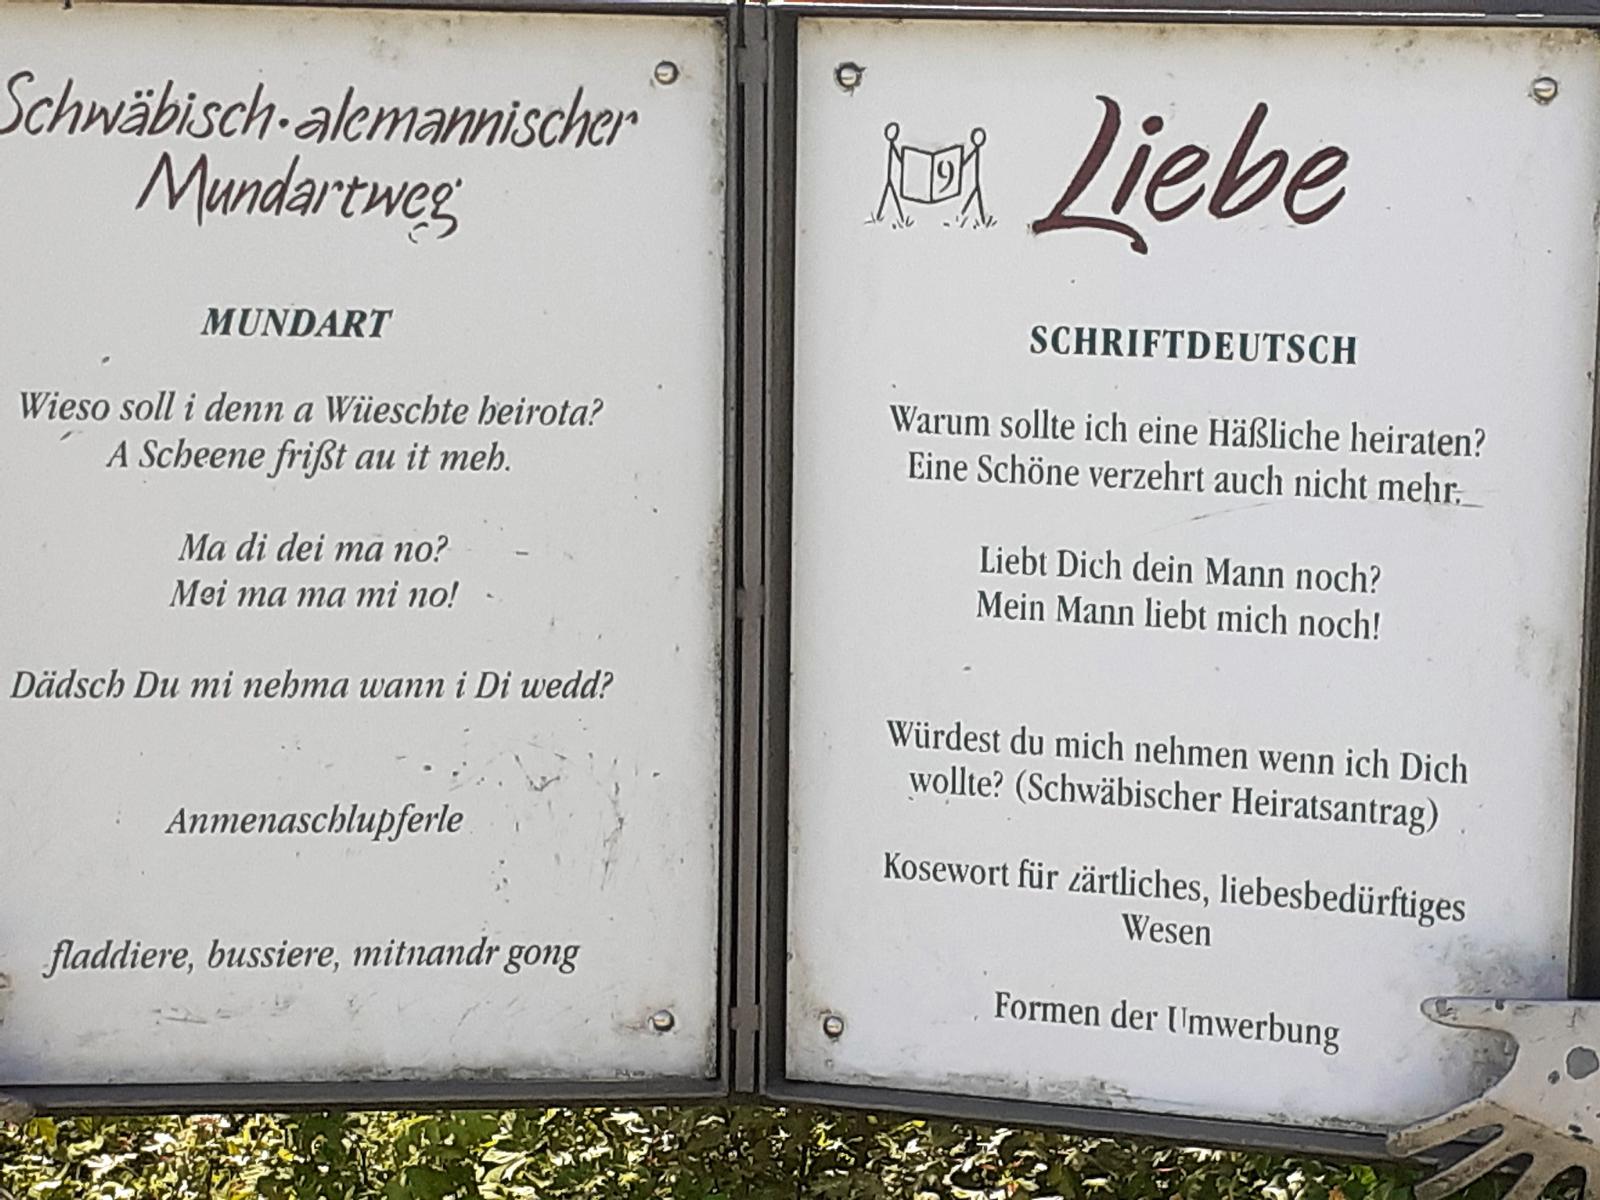 Schwäbisch·alemannischer
Mundartweg
MUNDART
Wieso soll i denn a Wüeschte heirota?
A Scheene frißt au it meh.
Ma di dei ma no?
Mei ma ma mi no!
Dädsch Du mi nehma wann i Di wedd?
Anmenaschlupferle
fladdiere, bussiere, mitnandr gong
9
Liebe
SCHRIFTDEUTSCH
Warum sollte ich eine Häßliche heiraten?
Eine Schöne verzehrt auch nicht mehr.
Liebt Dich dein Mann noch?
Mein Mann liebt mich noch!
Würdest du mich nehmen wenn ich Dich
wollte? (Schwäbischer Heiratsantrag)
Kosewort für zärtliches, liebesbedürftiges
Wesen
Formen der Umwerbung